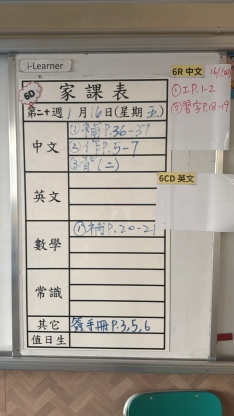 i-Learner
6D
家課表
第二十週 1月16日(星期五)
中文
①補P.36-37
②作P.5-7
③背(二)
英文
數學
①補P.20-21
常識
其它
簽手冊P.3,5,6
值日生
6R 中文
①工P.1-2
②習字P.18-19
6CD 英文